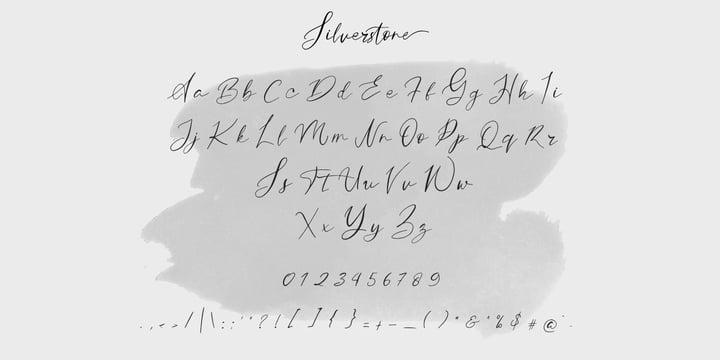 Silverstone
Aa Bb Cc Dd Ee Ff Gg Hh Ii
Jj Kk Ll Mm Nn Oo Pp Qq Rr
Ss Tt Uu Vv Ww
Xx Yy Zz
0123456789
. , < > / | \ : ; ' " ? ! [ ] { } = + - _ ( ) * & ° % $ # @